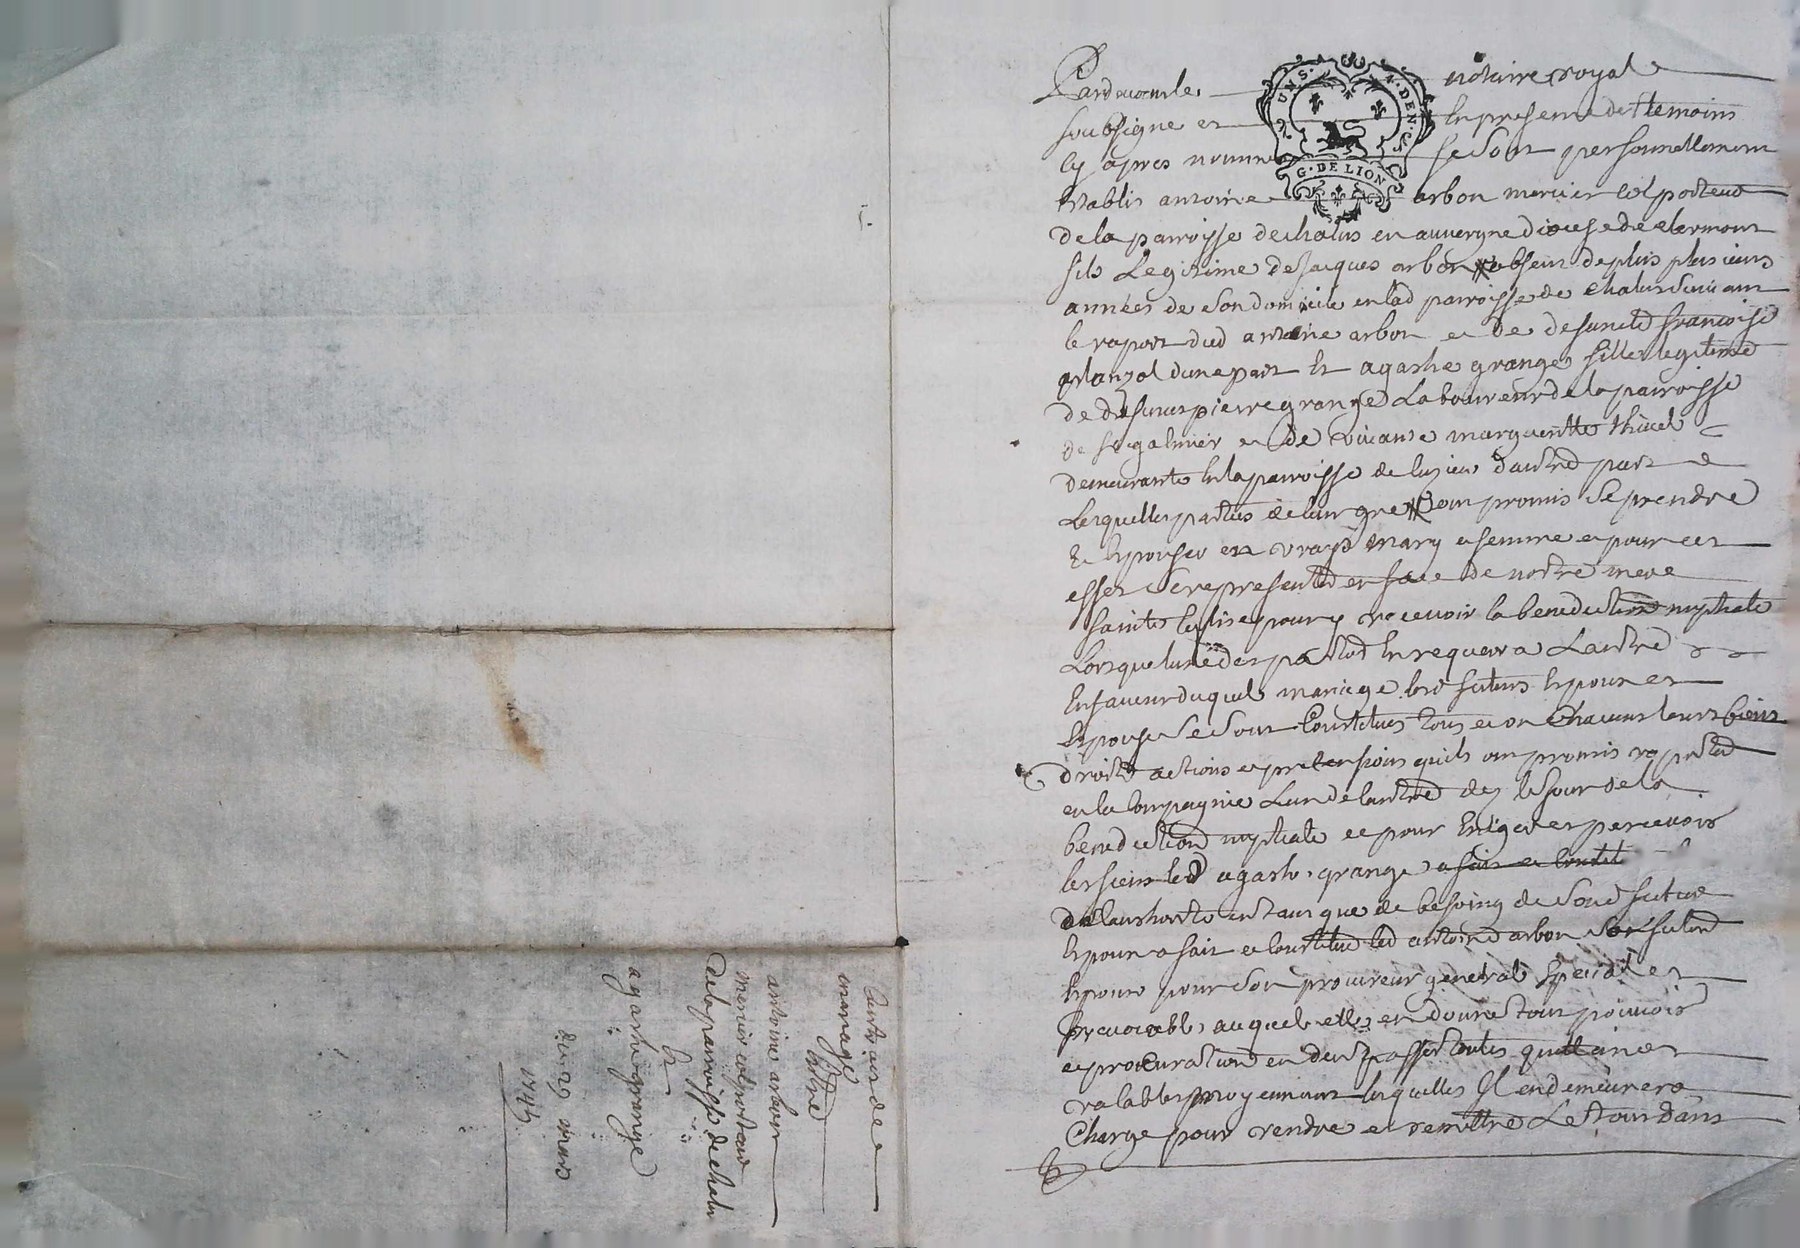 Pardevant le notaire royal
soubsigné et en presence des temoins
cy apres nommes se sont personnellement
establis antoine arbon mercier colporteur
de la parroisse de chalus en auvergne diocese de clermont
fils legitime de Jacques arbon absent depuis plusieurs
années de son domicile en lad parroisse de chalus suivant
le raport dud antoine arbon et de defuncte françoise
dune part Et agathe grange fille legitime
de defunct pierre grange Laboureur de la parroisse
de St galmier et de vivante margueritte thivel
demeurante En la parroisse de d'autre part
Lesquelles parties de leur gre ont promis se prendre
Et Epouser en vrays mary et femme et pour cet
effet se representer en face de nostre mere
sainte Eglise pour y recevoir la benediction nuptiale
Lorsque lune des parties En requerra Lautre
En faveur duquel mariage lesd futurs Epoux et
Epouse se sont Constitues tous et un chacuns leurs biens
droits actions et pretensions quils ont promis raporter
en la Compagnie Lun de lautre des le jour de la
benediction nuptiale et pour Exiger et percevoir
les siens lad agathe grange a fait et constitué
de lauthorité en tant que de besoing de sond futur
Epoux a fait et constitué led antoine arbon son futur
Epoux pour son procureur general special et
irrevocable auquel elle en donne tout pouvoir
et procuration en passer toutes quittances
valables moyennant lesquelles Il en demeurera
Chargé pour rendre et remettre Le tout dans
Contrat de
mariage
entre
antoine arbon
mercier colporteur
de la parroisse de chalus
Et
agathe grange
du 23 mars